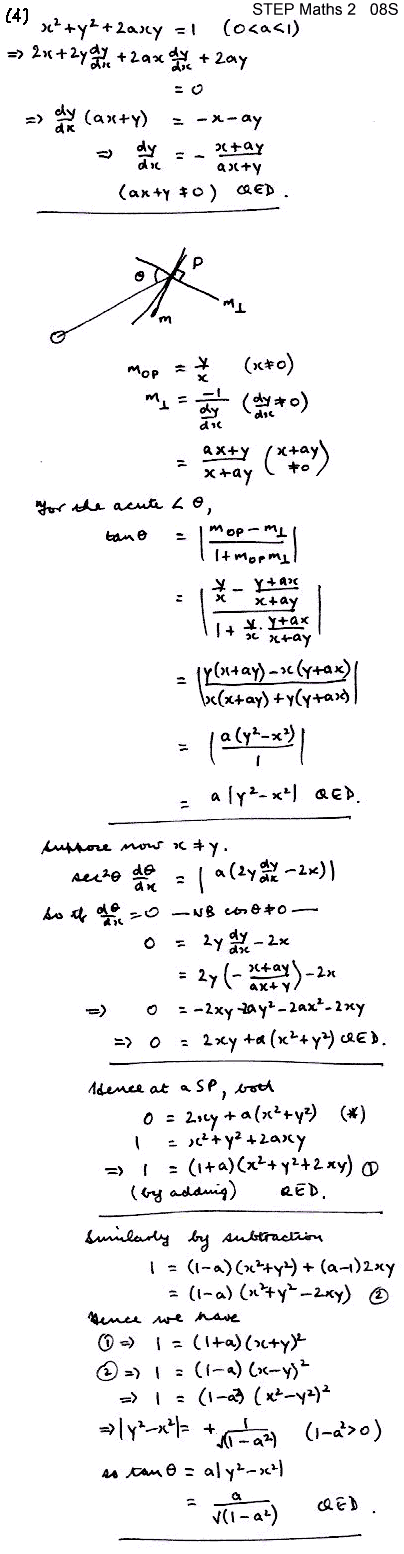 STEP Maths 2 08S
(4) x² + y² + 2axy = 1 (0<a<1)
⇒ 2x + 2y dy/dx + 2ax dy/dx + 2ay
= 0
⇒ dy/dx (ax+y) = -x - ay
⇒ dy/dx = - (x+ay)/(ax+y)
(ax+y ≠ 0) QED.
θ P
m⊥
m
O
m_OP = y/x (x≠0)
m⊥ = -1/(dy/dx) (dy/dx ≠ 0)
= (ax+y)/(x+ay) (x+ay ≠ 0)
For the acute ∠ θ,
tan θ = |(m_OP - m⊥)/(1 + m_OP m⊥)|
= |(y/x - (y+ax)/(x+ay))/(1 + y/x · (y+ax)/(x+ay))|
= |(y(x+ay) - x(y+ax))/(x(x+ay) + y(y+ax))|
= |a(y²-x²)/1|
= a|y²-x²| QED.
Suppose now x ≠ y.
sec²θ dθ/dx = |a(2y dy/dx - 2x)|
So if dθ/dx = 0 — NB cos θ ≠ 0 —
0 = 2y dy/dx - 2x
= 2y(-(x+ay)/(ax+y)) - 2x
⇒ 0 = -2xy - 2ay² - 2ax² - 2xy
⇒ 0 = 2xy + a(x²+y²) QED.
Hence at a SP, both
0 = 2xy + a(x²+y²) (*)
1 = x²+y²+2axy
⇒ 1 = (1+a)(x²+y²+2xy) ①
(by adding) QED.
Similarly by subtraction
1 = (1-a)(x²+y²) + (a-1)2xy
= (1-a)(x²+y²-2xy) ②
Hence we have
① ⇒ 1 = (1+a)(x+y)²
② ⇒ 1 = (1-a)(x-y)²
⇒ 1 = (1-a²)(x²-y²)²
⇒ |y²-x²| = + 1/√(1-a²) (1-a²>0)
so tan θ = a|y²-x²|
= a/√(1-a²) QED.